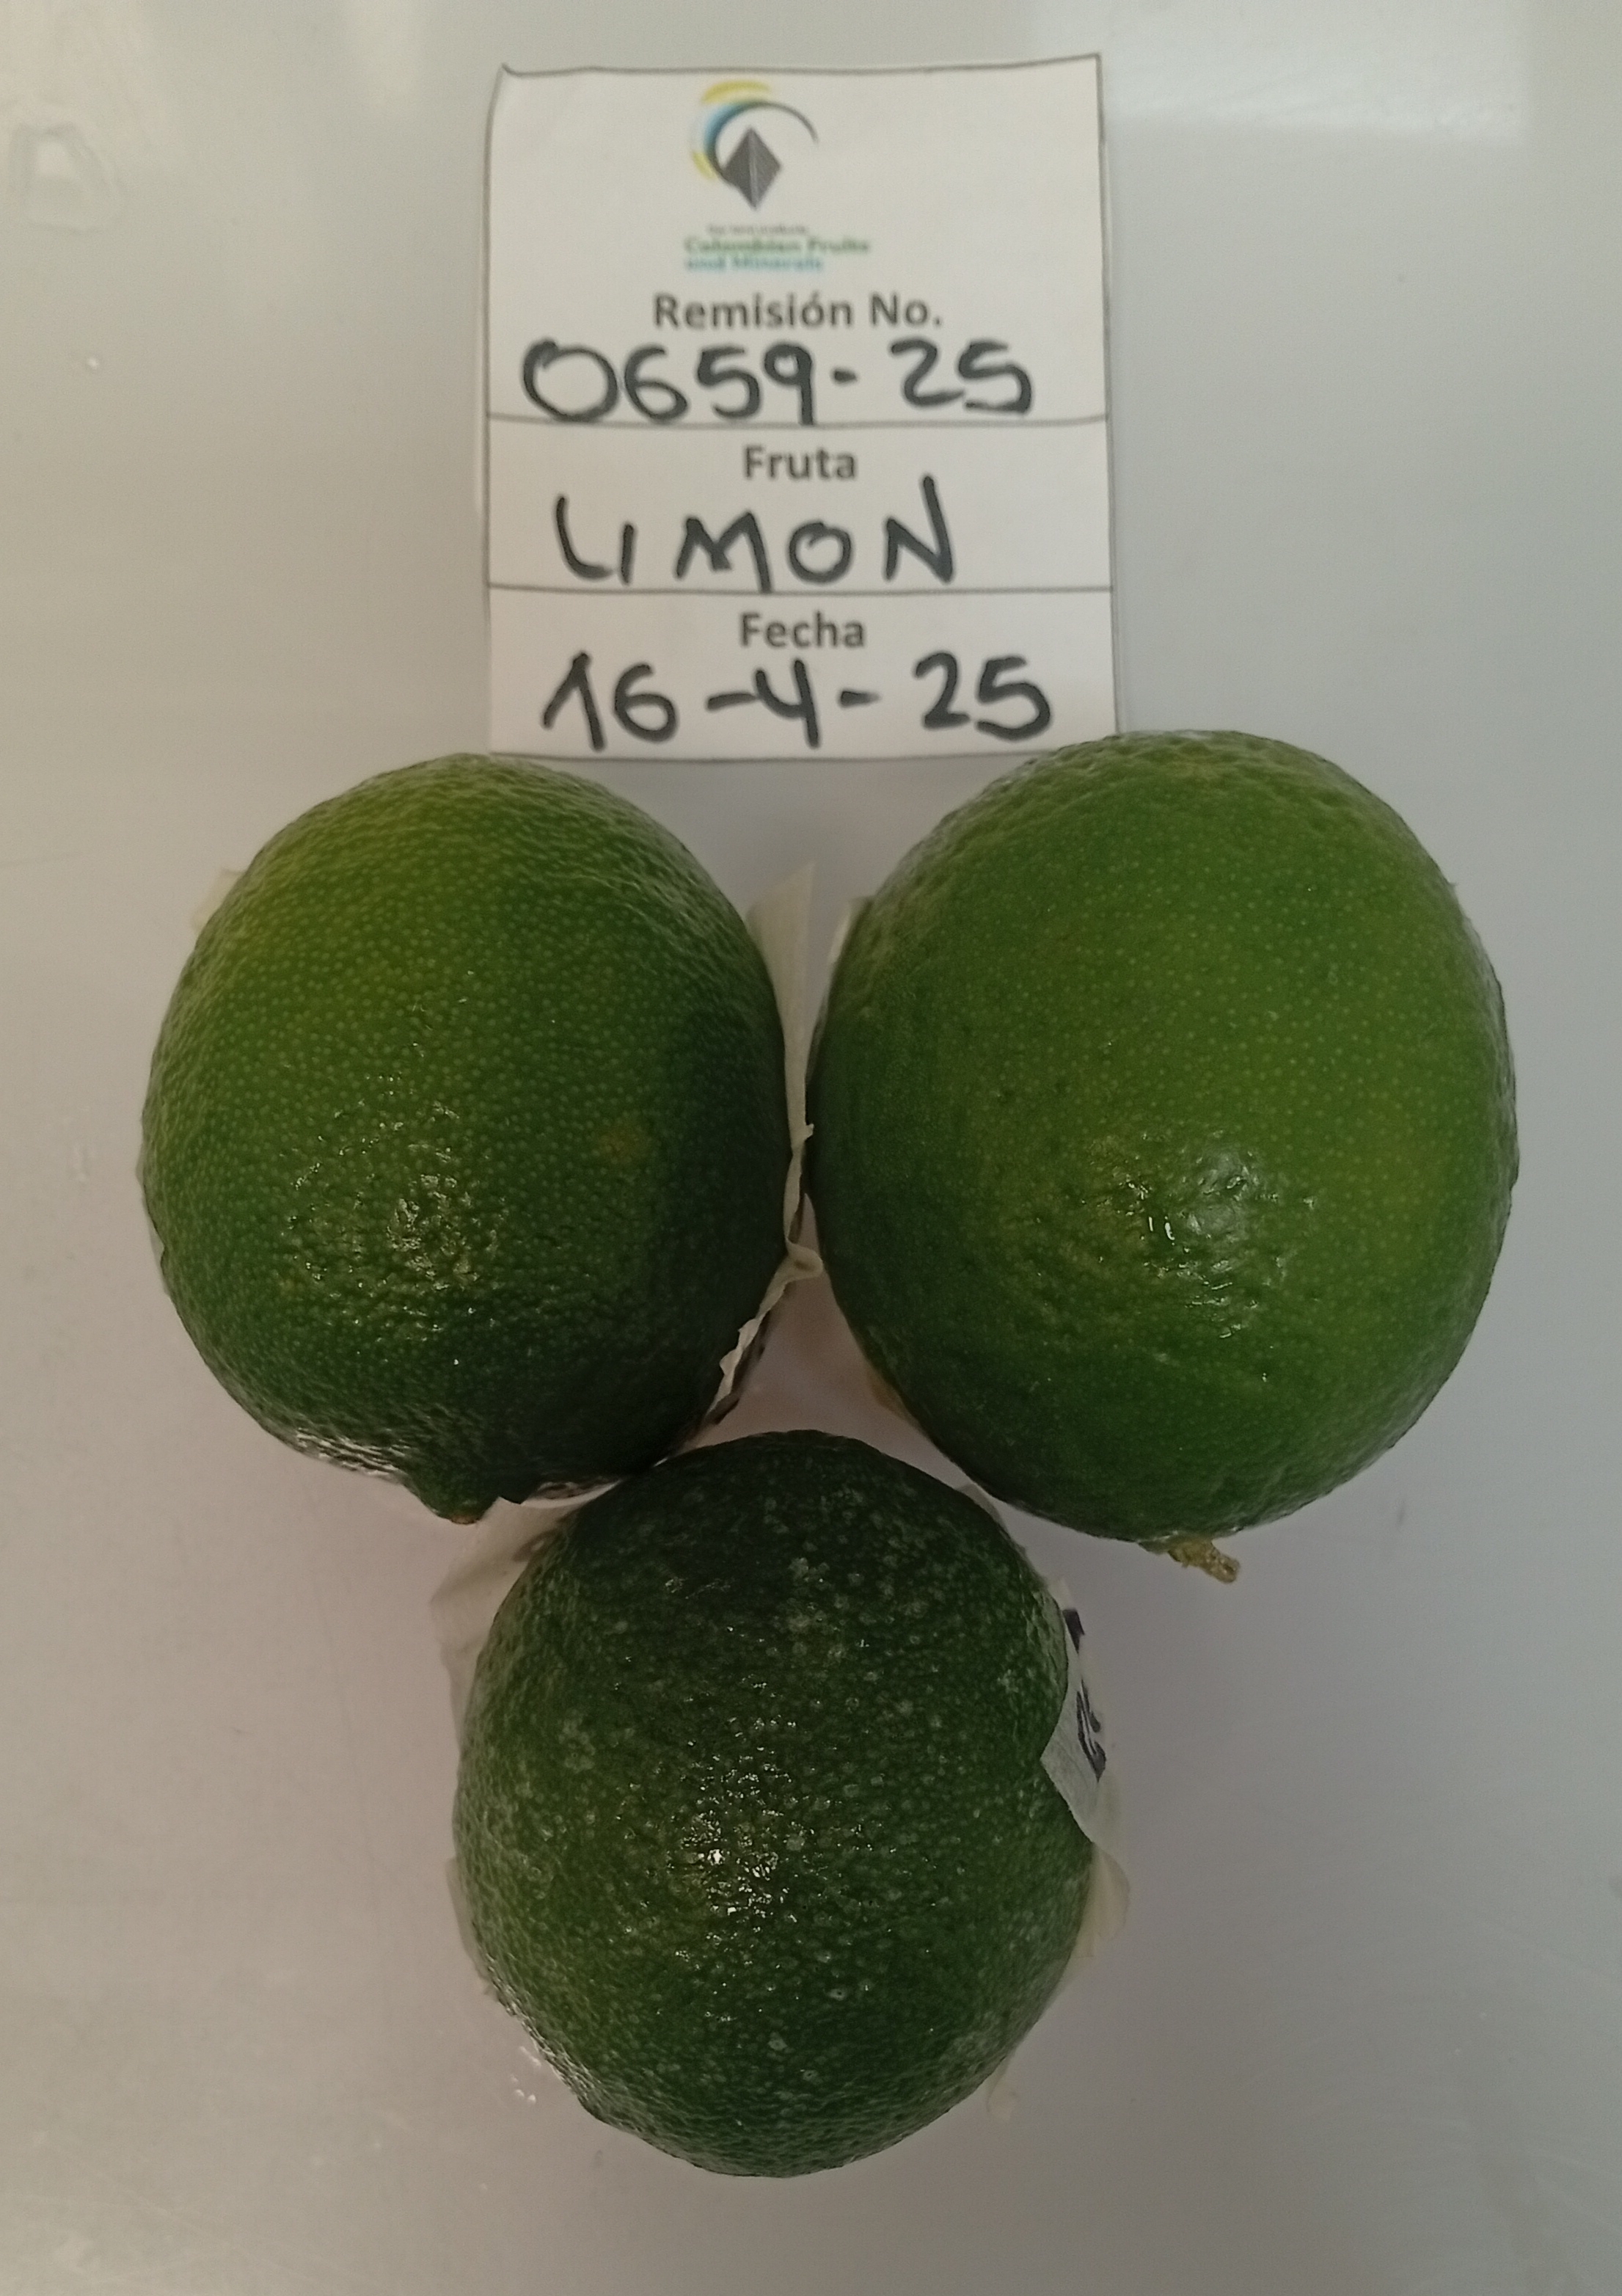 Colombian Fruits
and Minerals
Remisión No.
0659-25
Fruta
LIMON
Fecha
16-4-25